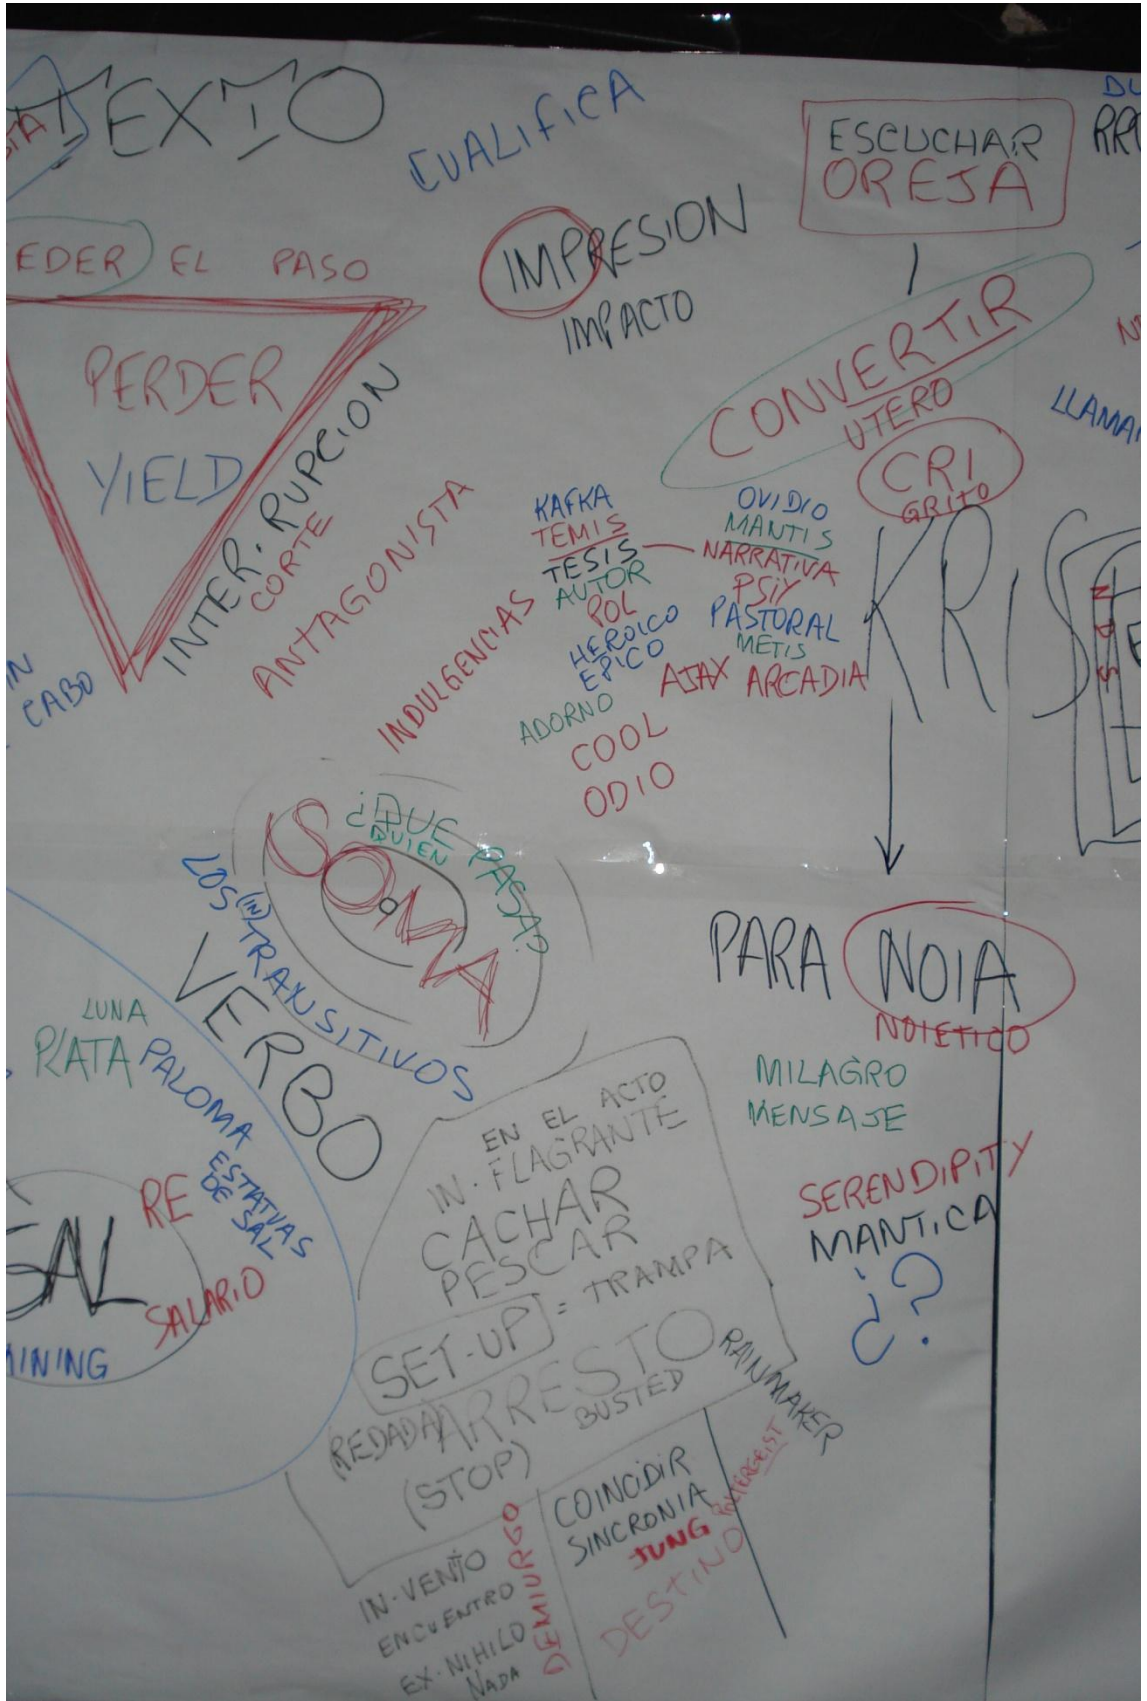 TEXTO
CUALIFICA
ESCUCHAR
OREJA
EDER EL PASO
IMPRESION
IMPACTO
PERDER
YIELD
INTER.RUPCION
CORTE
ANTAGONISTA
CONVERTIR
UTERO
CRI
GRITO
KRIS
KAFKA
TEMIS
TESIS
AUTOR
POL
HEROICO
EPICO
OVIDIO
MANTIS
NARRATIVA
PSIY
PASTORAL
METIS
AJAX ARCADIA
INDULGENCIAS
ADORNO
COOL
ODIO
CABO
¿QUE PASA?
QUIEN
SOMA
LOS (IN) TRANSITIVOS
VERBO
PARA NOIA
NOIETICO
MILAGRO
MENSAJE
SERENDIPITY
MANTICA
¿?
LUNA
PLATA
PALOMA
ESTATUAS
DE SAL
RE
SAL
SALARIO
EN EL ACTO
IN.FLAGRANTE
CACHAR
PESCAR
SET-UP = TRAMPA
ARRESTO
REDADA
BUSTED
(STOP)
RAINMAKER
COINCIDIR
SINCRONIA
JUNG
POLTERGEIST
DESTINO
DEMIURGO
IN-VENTO
ENCUENTRO
EX-NIHILO
NADA